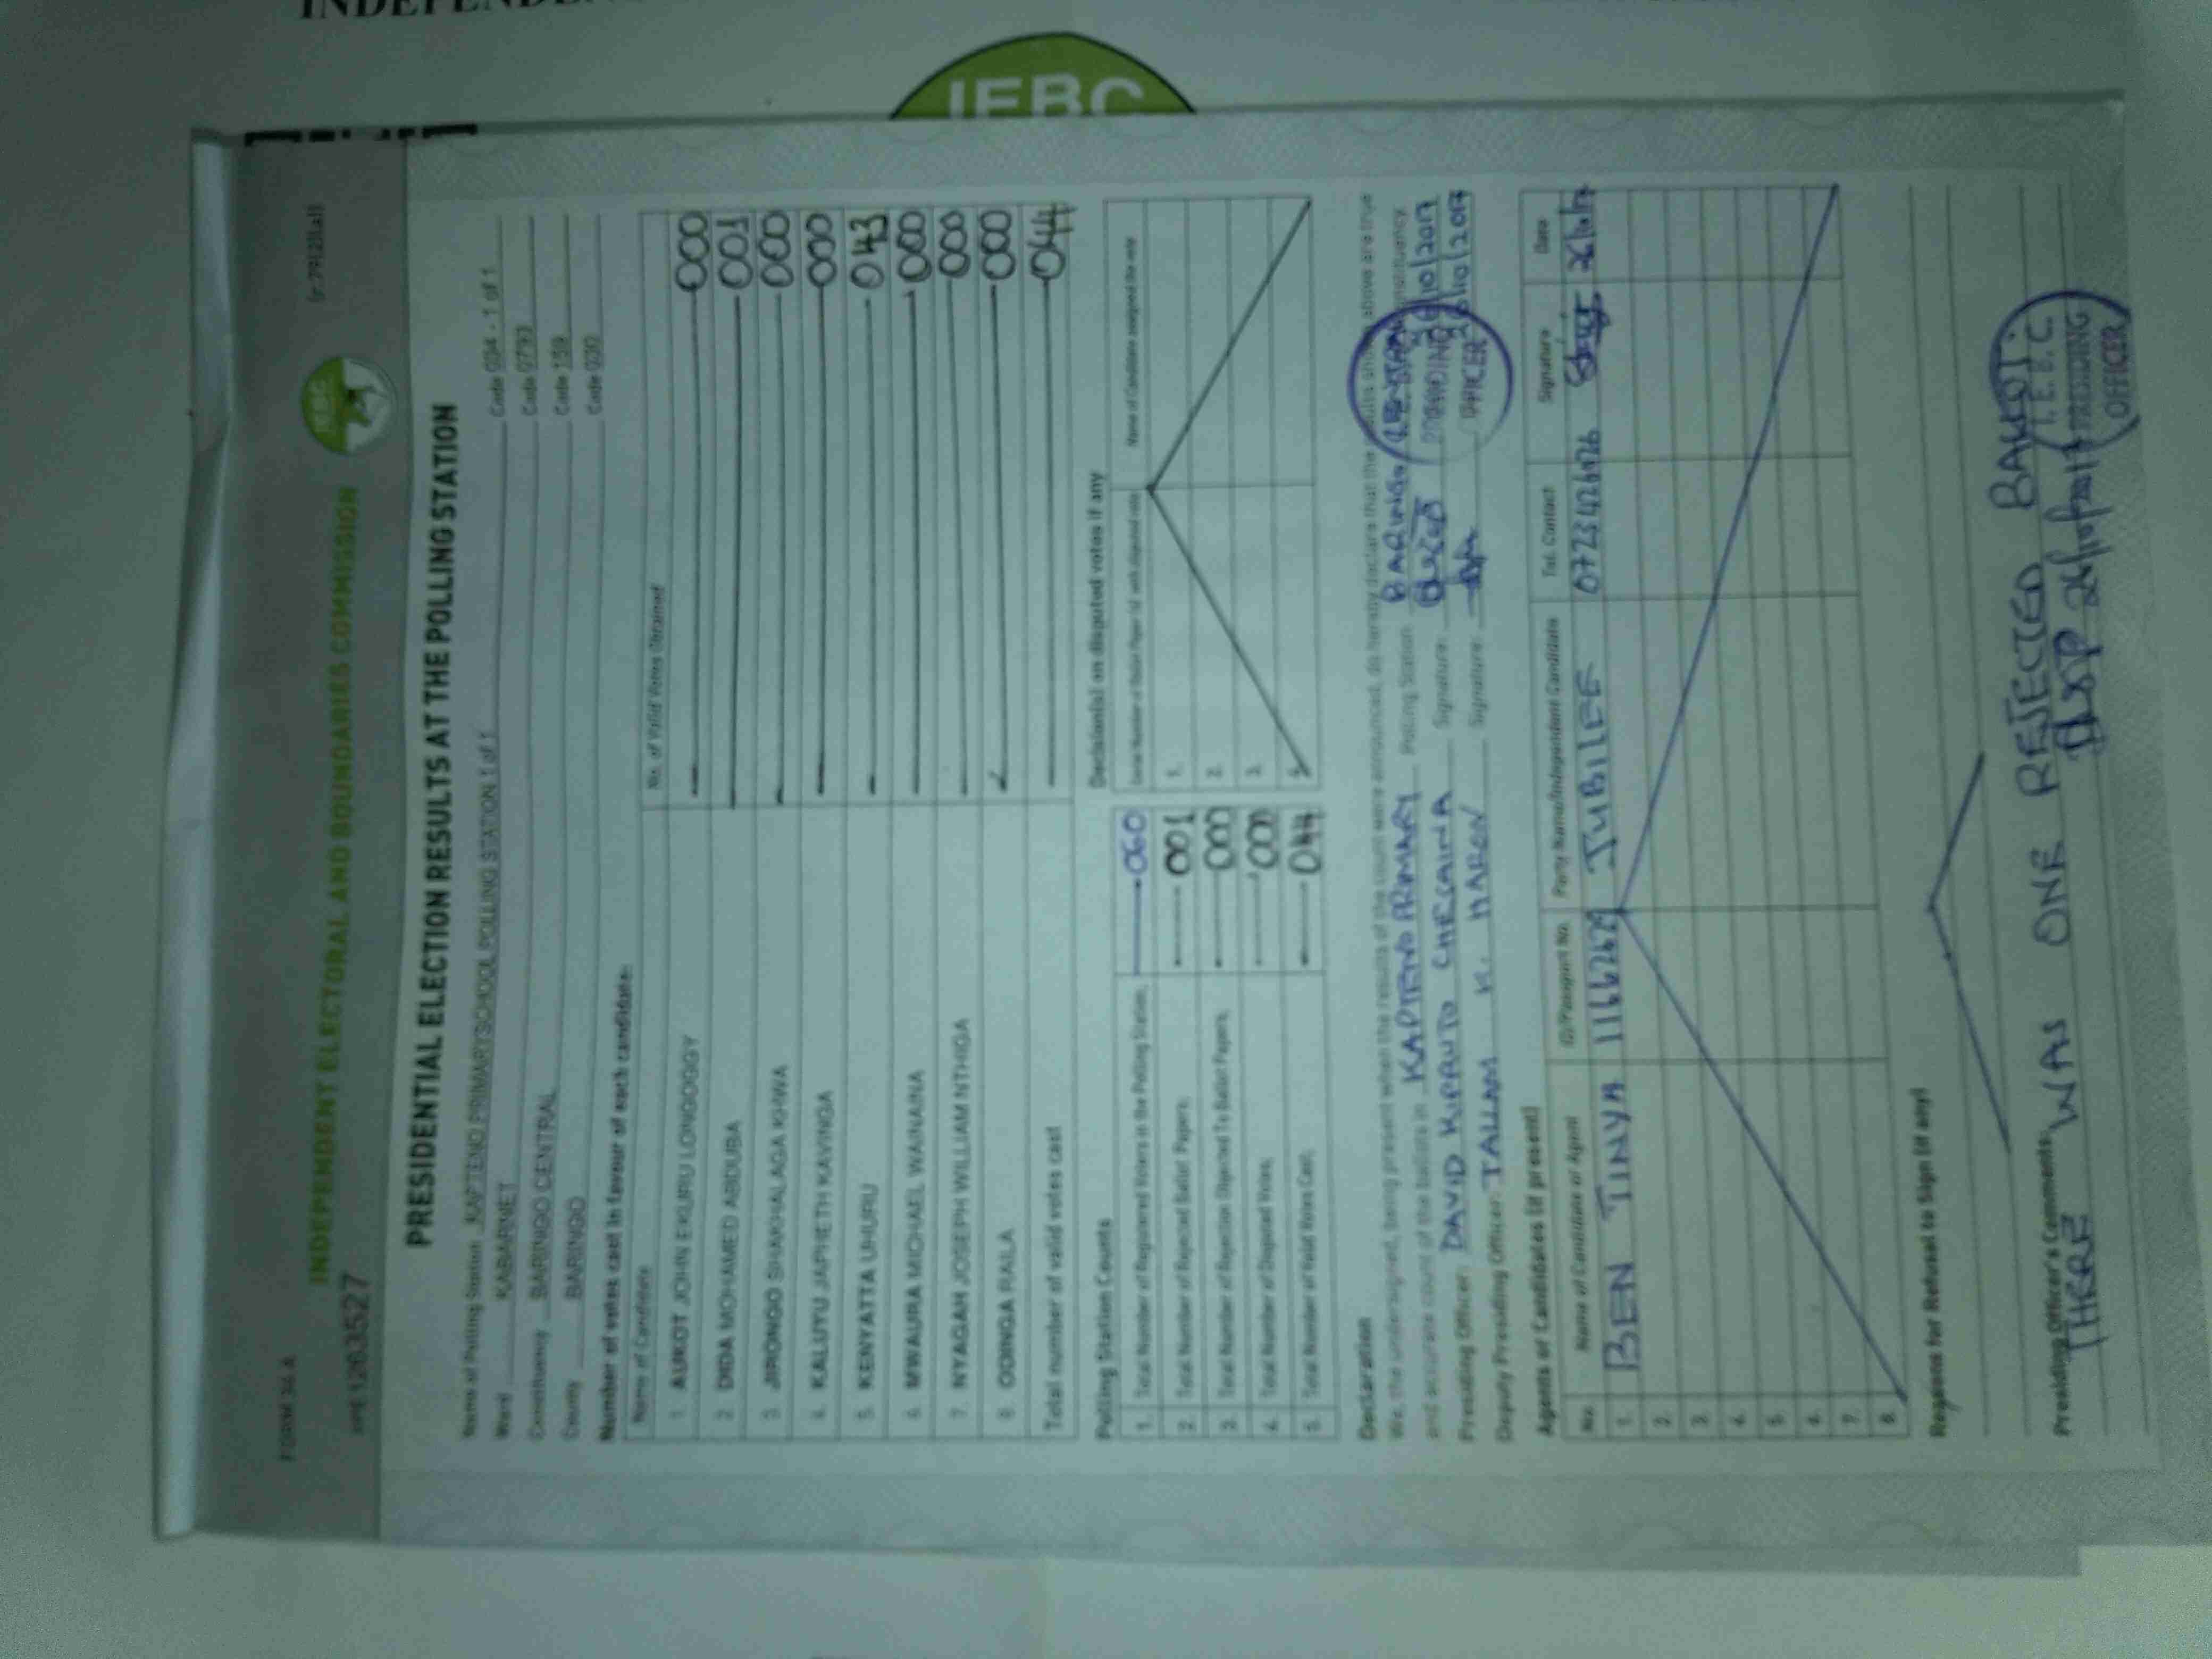 INDEPENDEN
IEBC
FORM 34 A
INDEPENDENT ELECTORAL AND BOUNDARIES COMMISSION
IEBC
1203527
PRESIDENTIAL ELECTION RESULTS AT THE POLLING STATION
Name of Polling Station KAPTENO PRIMARYSCHOOL POLLING STATION 1 of 1 Code 034 - 1 of 1
Ward KABARNET Code 0793
Constituency BARINGO CENTRAL Code 159
County BARINGO Code 030
Number of votes cast in favour of each candidate:
Name of Candidate No. of Valid Votes Obtained
1. AUKOT JOHN EKURU LONGOGGY 000
2. DIDA MOHAMED ABDUBA 001
3. JIRONGO SHAKHALAGA KHWA 000
4. KALUYU JAPHETH KAVINGA 000
5. KENYATTA UHURU 043
6. MWAURA MICHAEL WAINAINA 000
7. NYAGAH JOSEPH WILLIAM NTHIGA 000
8. ODINGA RAILA 000
Total number of valid votes cast 044
Polling Station Counts
1. Total Number of Registered Voters in the Polling Station 060
2. Total Number of Rejected Ballot Papers 001
3. Total Number of Rejection Objected To Ballot Papers 000
4. Total Number of Disputed Votes 000
5. Total Number of Valid Votes Cast 044
Decision(s) on disputed votes if any
Serial Number of Ballot Paper with disputed vote Name of Candidate assigned the vote
1.
2.
3.
4.
Declaration
We, the undersigned, being present when the results of the count were announced, do hereby declare that the results shown above are true
and accurate count of the ballots in KAPTENO PRIMARY Polling Station BARINGO CENTRAL Constituency
Presiding Officer: DAVID KIPRUTO CHECAINA Signature: 26/10/2017
Deputy Presiding Officer: TALLAM K. HARON Signature: 26/10/2017
PRESIDING
OFFICER
Agents or Candidates (if present)
No. Name of Candidate or Agent ID/Passport No. Party Name/Independent Candidate Tel. Contact Signature Date
1. BEN TINYA 11162629 JUBILEE 0723426126 26/10/17
2.
3.
4.
5.
6.
7.
8.
Reasons for Refusal to Sign (if any)
Presiding Officer's Comments:
THERE WAS ONE REJECTED BALLOT.
26/10/2017
I.E.B.C.
PRESIDING
OFFICER